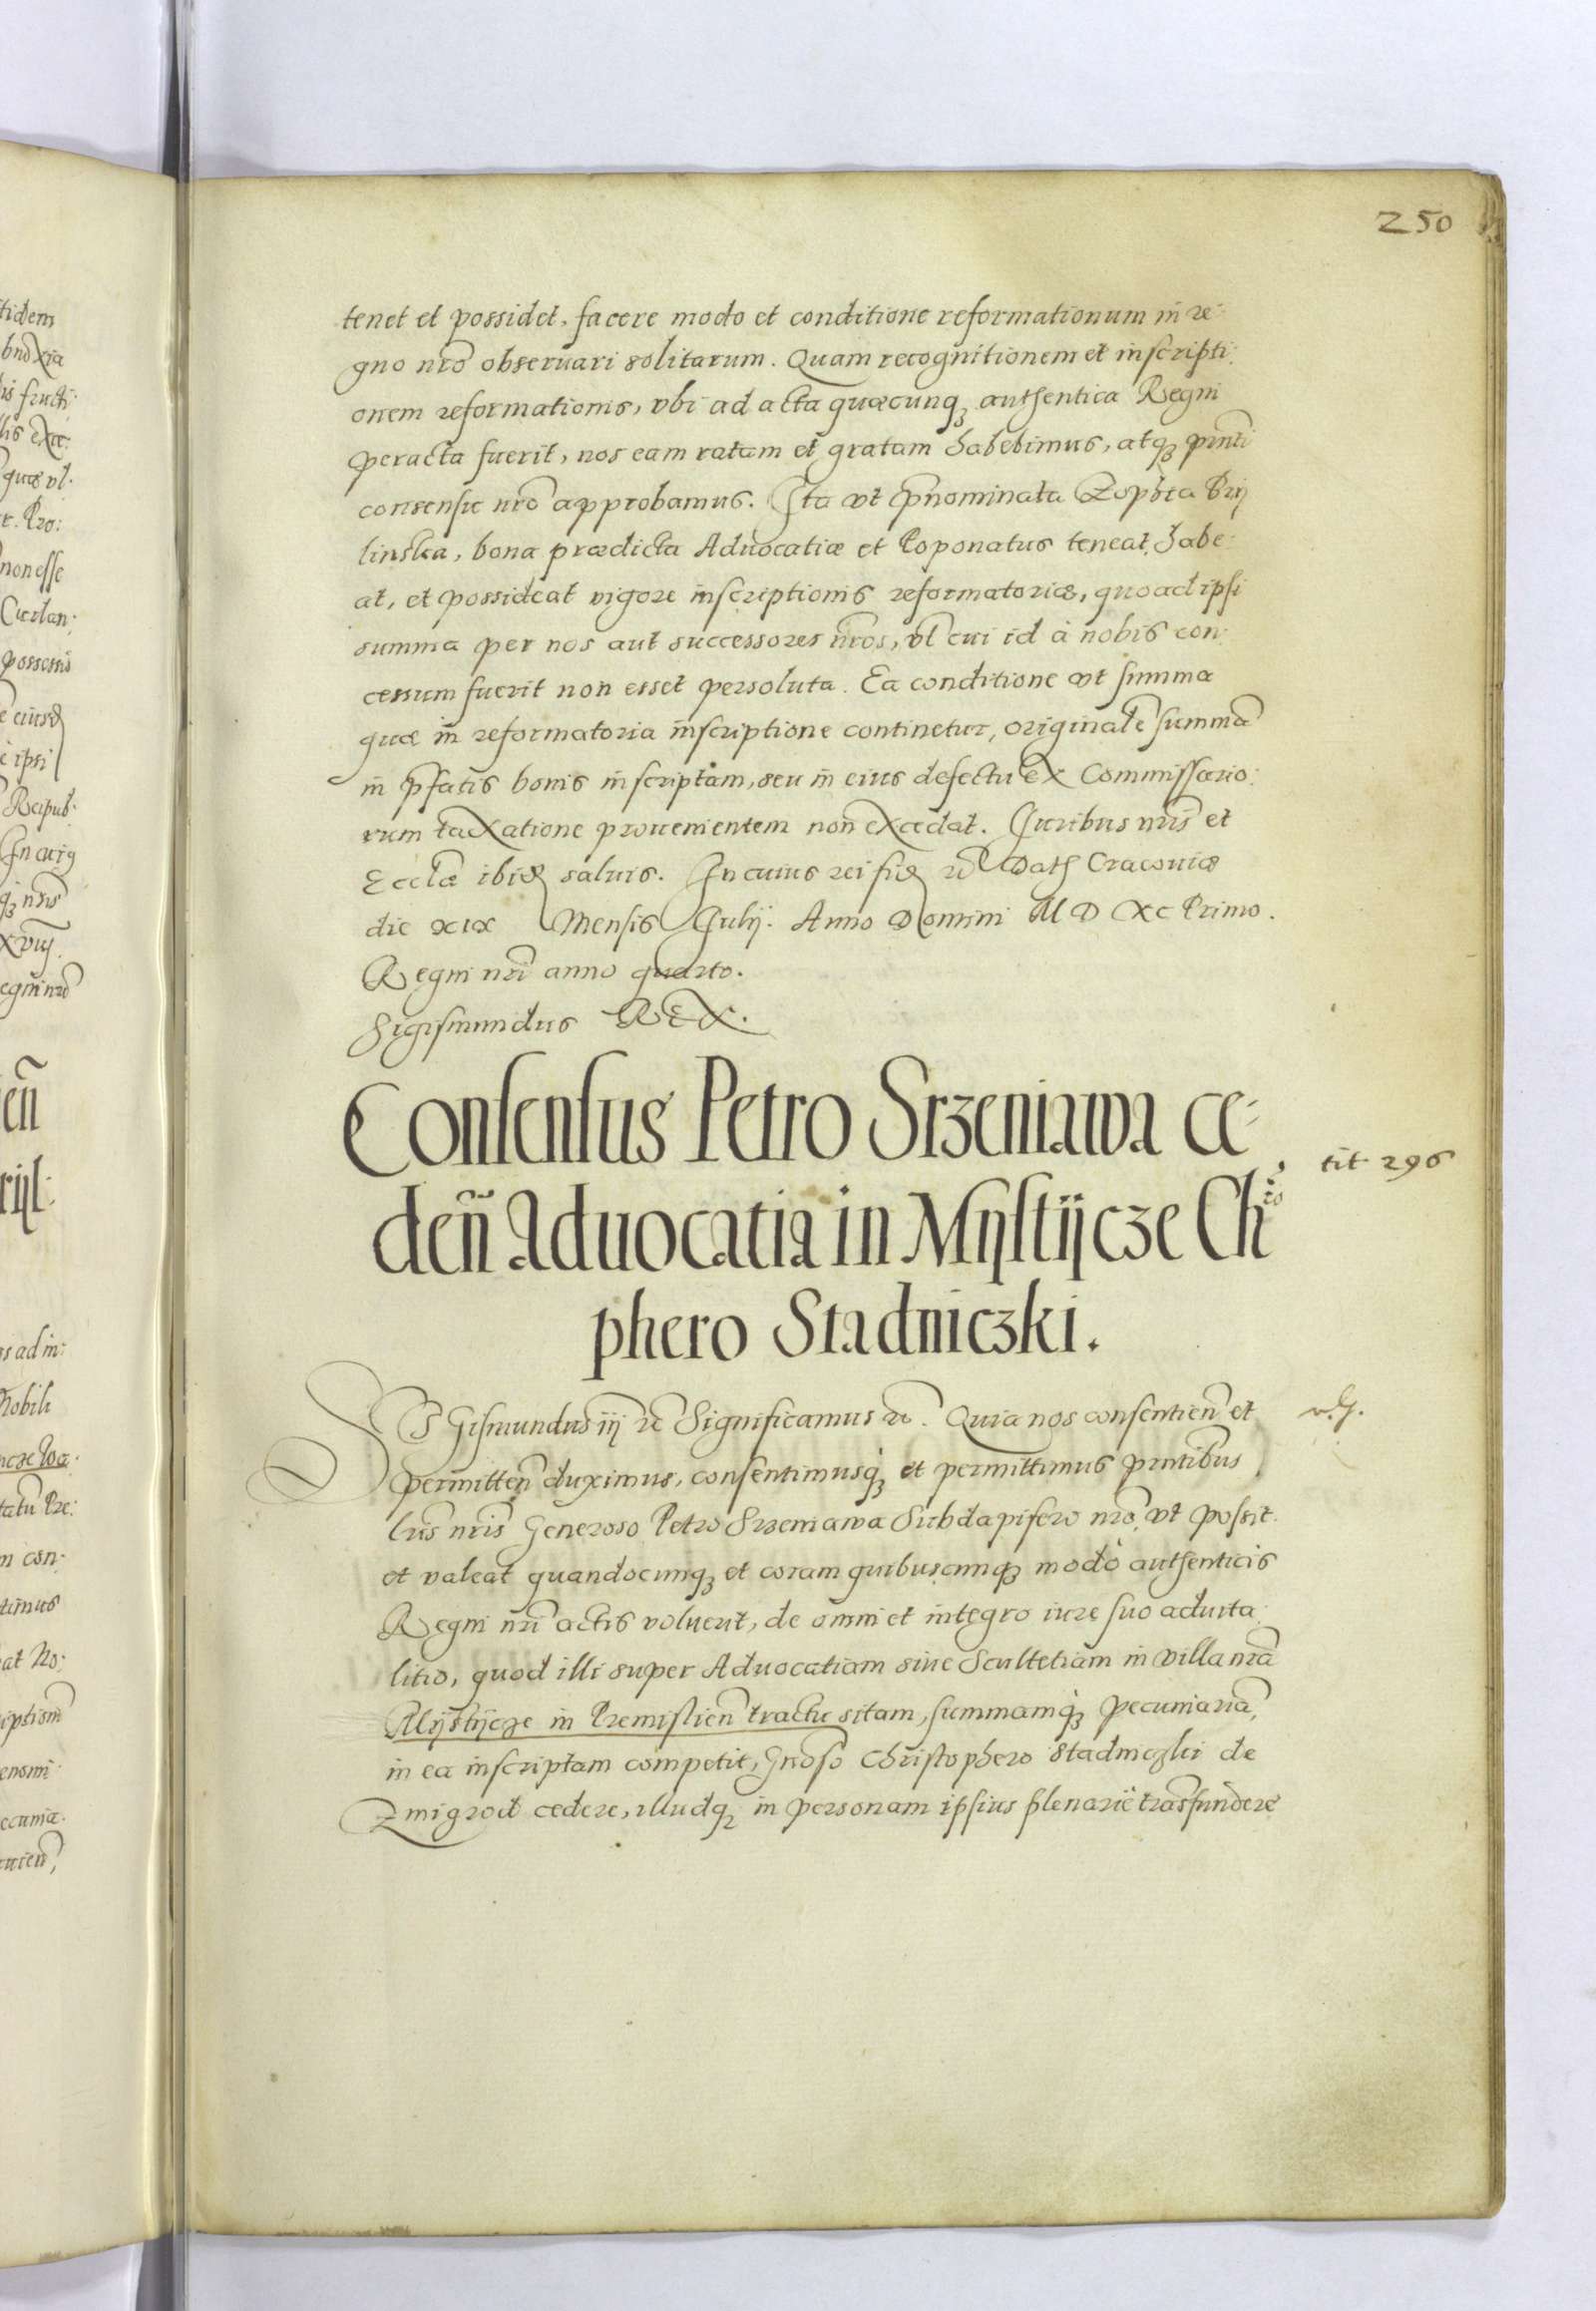 250
tenet et possidet, facere modo et conditione reformationum in re:
gno nrõ obseruari solitarum. Quam recognitionem et inscripti:
onem reformationis, vbi ad acta quæcunqꝫ authentica Regni
peracta fuerit, nos eam ratam et gratam habebimus, atqꝫ pñti
consensu nrõ approbamus. Ita vt p̃nominata Zophia Prij
linska, bona prædicta Aduocatiæ et Poponatus teneat, habe:
at, et possideat vigore inscriptionis reformatoriæ, quoad ipsi
summa per nos aut successores nr̃os, vl̃ cui id à nobis con:
cessum fuerit non esset persoluta. Ea conditione vt summa
quæ in reformatoria inscriptione continetur, originalẽ summã
in p̃fatis bonis inscriptam, seu in eius defectu ex Commissario:
rum taxatione prouenientem non excedat. Iuribus nr̃is et
Ecclæ̃ ibid saluis. In cuius rei fid rc̃ Dat Cracouiæ
die xix Mensis Iulij. Anno Domini M D XC Primo.
Regni nrĩ anno quarto.
Sigismundus REX.
Consensus Petro Srzeniawa ce:
deñ Aduocatia in Mijstijcze Chrõ
phero Stadniczki.
tit 296
SIGismundus iij rc̃ Significamus rc̃. Quia nos consentien̄ et
permitten̄ duximus, consentimusqꝫ et permittimus pñtibus
lr̃is nr̃is Generoso Petro Srzeniawa Subdapifero nrõ, vt possit
et valeat quandocunqꝫ et coram quibuscunqꝫ modò authenticis
Regni nrĩ actis voluerit, de omni et integro iure suo aduita
litio, quod illi super Aduocatiam siue Scultetiam in villa nrã
Mijstijcze in Premislien̄ tractu sitam, summamqꝫ pecuniariã,
in ea inscriptam competit, Gnõso Christophero Stadniczki de
Zmigrod cedere, illudqꝫ in personam ipsius plenariè trãsfundere